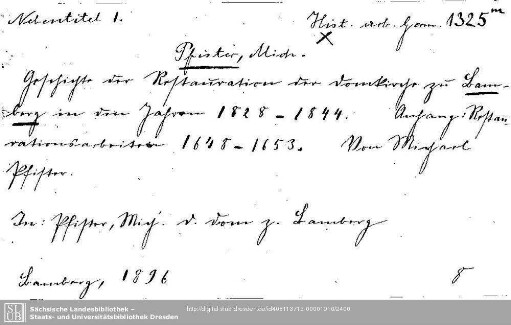 Nebentitel 1. Hist. urb. Germ. 1325 m
Pfister, Mich.
Geschichte der Restauration der Domkirche zu Bam-
berg in den Jahren 1828 - 1844. Anhang: Restau-
rationsarbeiten 1648 - 1653. Von Michael
Pfister.
In: Pfister, Mich. d. Dom z. Bamberg
Bamberg, 1896 8
Sächsische Landesbibliothek –
Staats- und Universitätsbibliothek Dresden